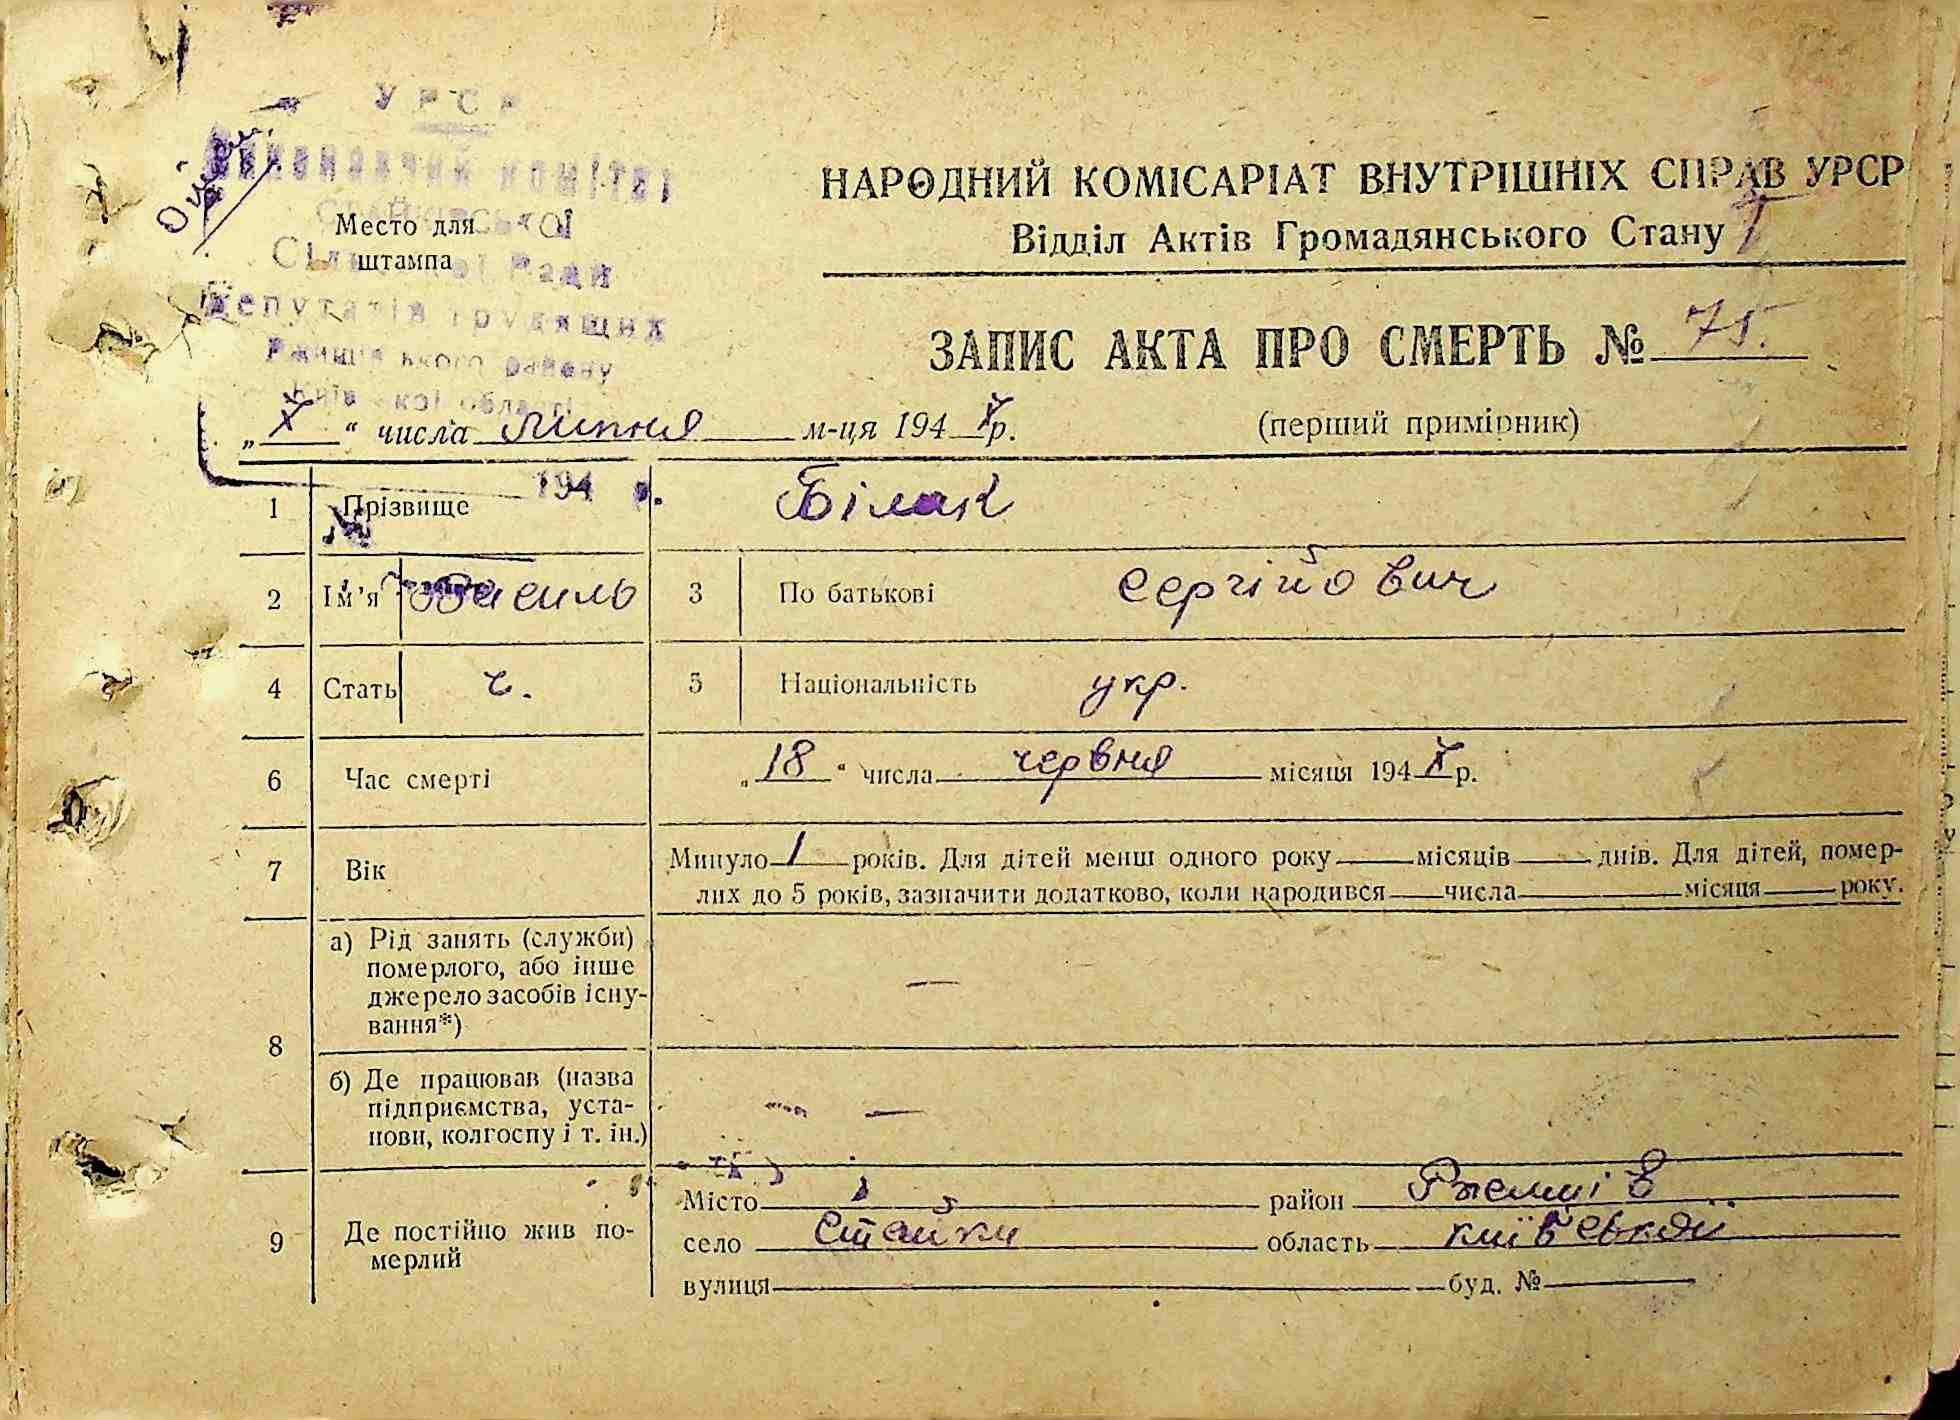 УРСР
Виконавчий комітет
НАРОДНИЙ КОМІСАРІАТ ВНУТРІШНІХ СПРАВ УРСР
Место для
штампа
Відділ Актів Громадянського Стану
Сільської Ради
Депутатів трудящих
ЗАПИС АКТА ПРО СМЕРТЬ № 75.
Ржищівського району
Київської області
„ “ числа липня м-ця 194 р.
(перший примірник)
194 р.
1 Прізвище Білак
№
2 Ім’я Василь 3 По батькові Сергійович
4 Стать ч. 5 Національність укр.
6 Час смерті „18“ числа червня місяця 194 р.
7 Вік Минуло 1 років. Для дітей менш одного року місяців днів. Для дітей, помер-
лих до 5 років, зазначити додатково, коли народився числа місяця року.
8 а) Рід занять (служби)
померлого, або інше
джерело засобів існу-
вання*) —
б) Де працював (назва
підприємства, уста-
нови, колгоспу і т. ін.) —
9 Де постійно жив по-
мерлий
Місто район Ржищів
село Стайки область київської
вулиця буд. №